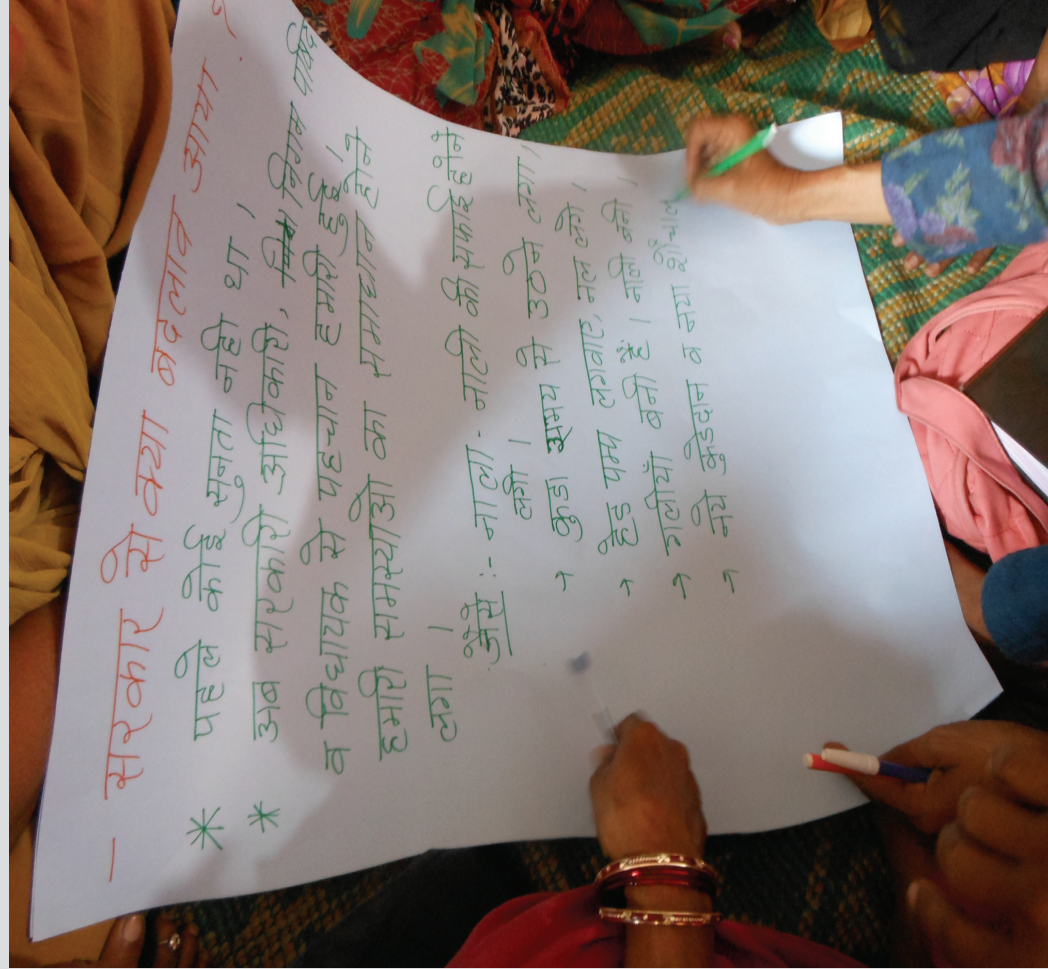 - सरकार से क्या बदलाव आया ?
* पहले कोई सुनता नही था ।
* अब सरकारी अधिकारी, निगम पार्षद
व विधायक से पहचान हमारी हुई ।
हमारी समस्याओ का समाधान होने
लगा ।
जैसे :- नाला - नाली की सफाई होने
लगी ।
→ कुडा समय से उठने लगा ।
→ हैड पम्प लगवाए, नल लगे ।
→ गलीयाँ बनी हैं । नाली बनी ।
→ नये कुडेदान व नया शौचाल